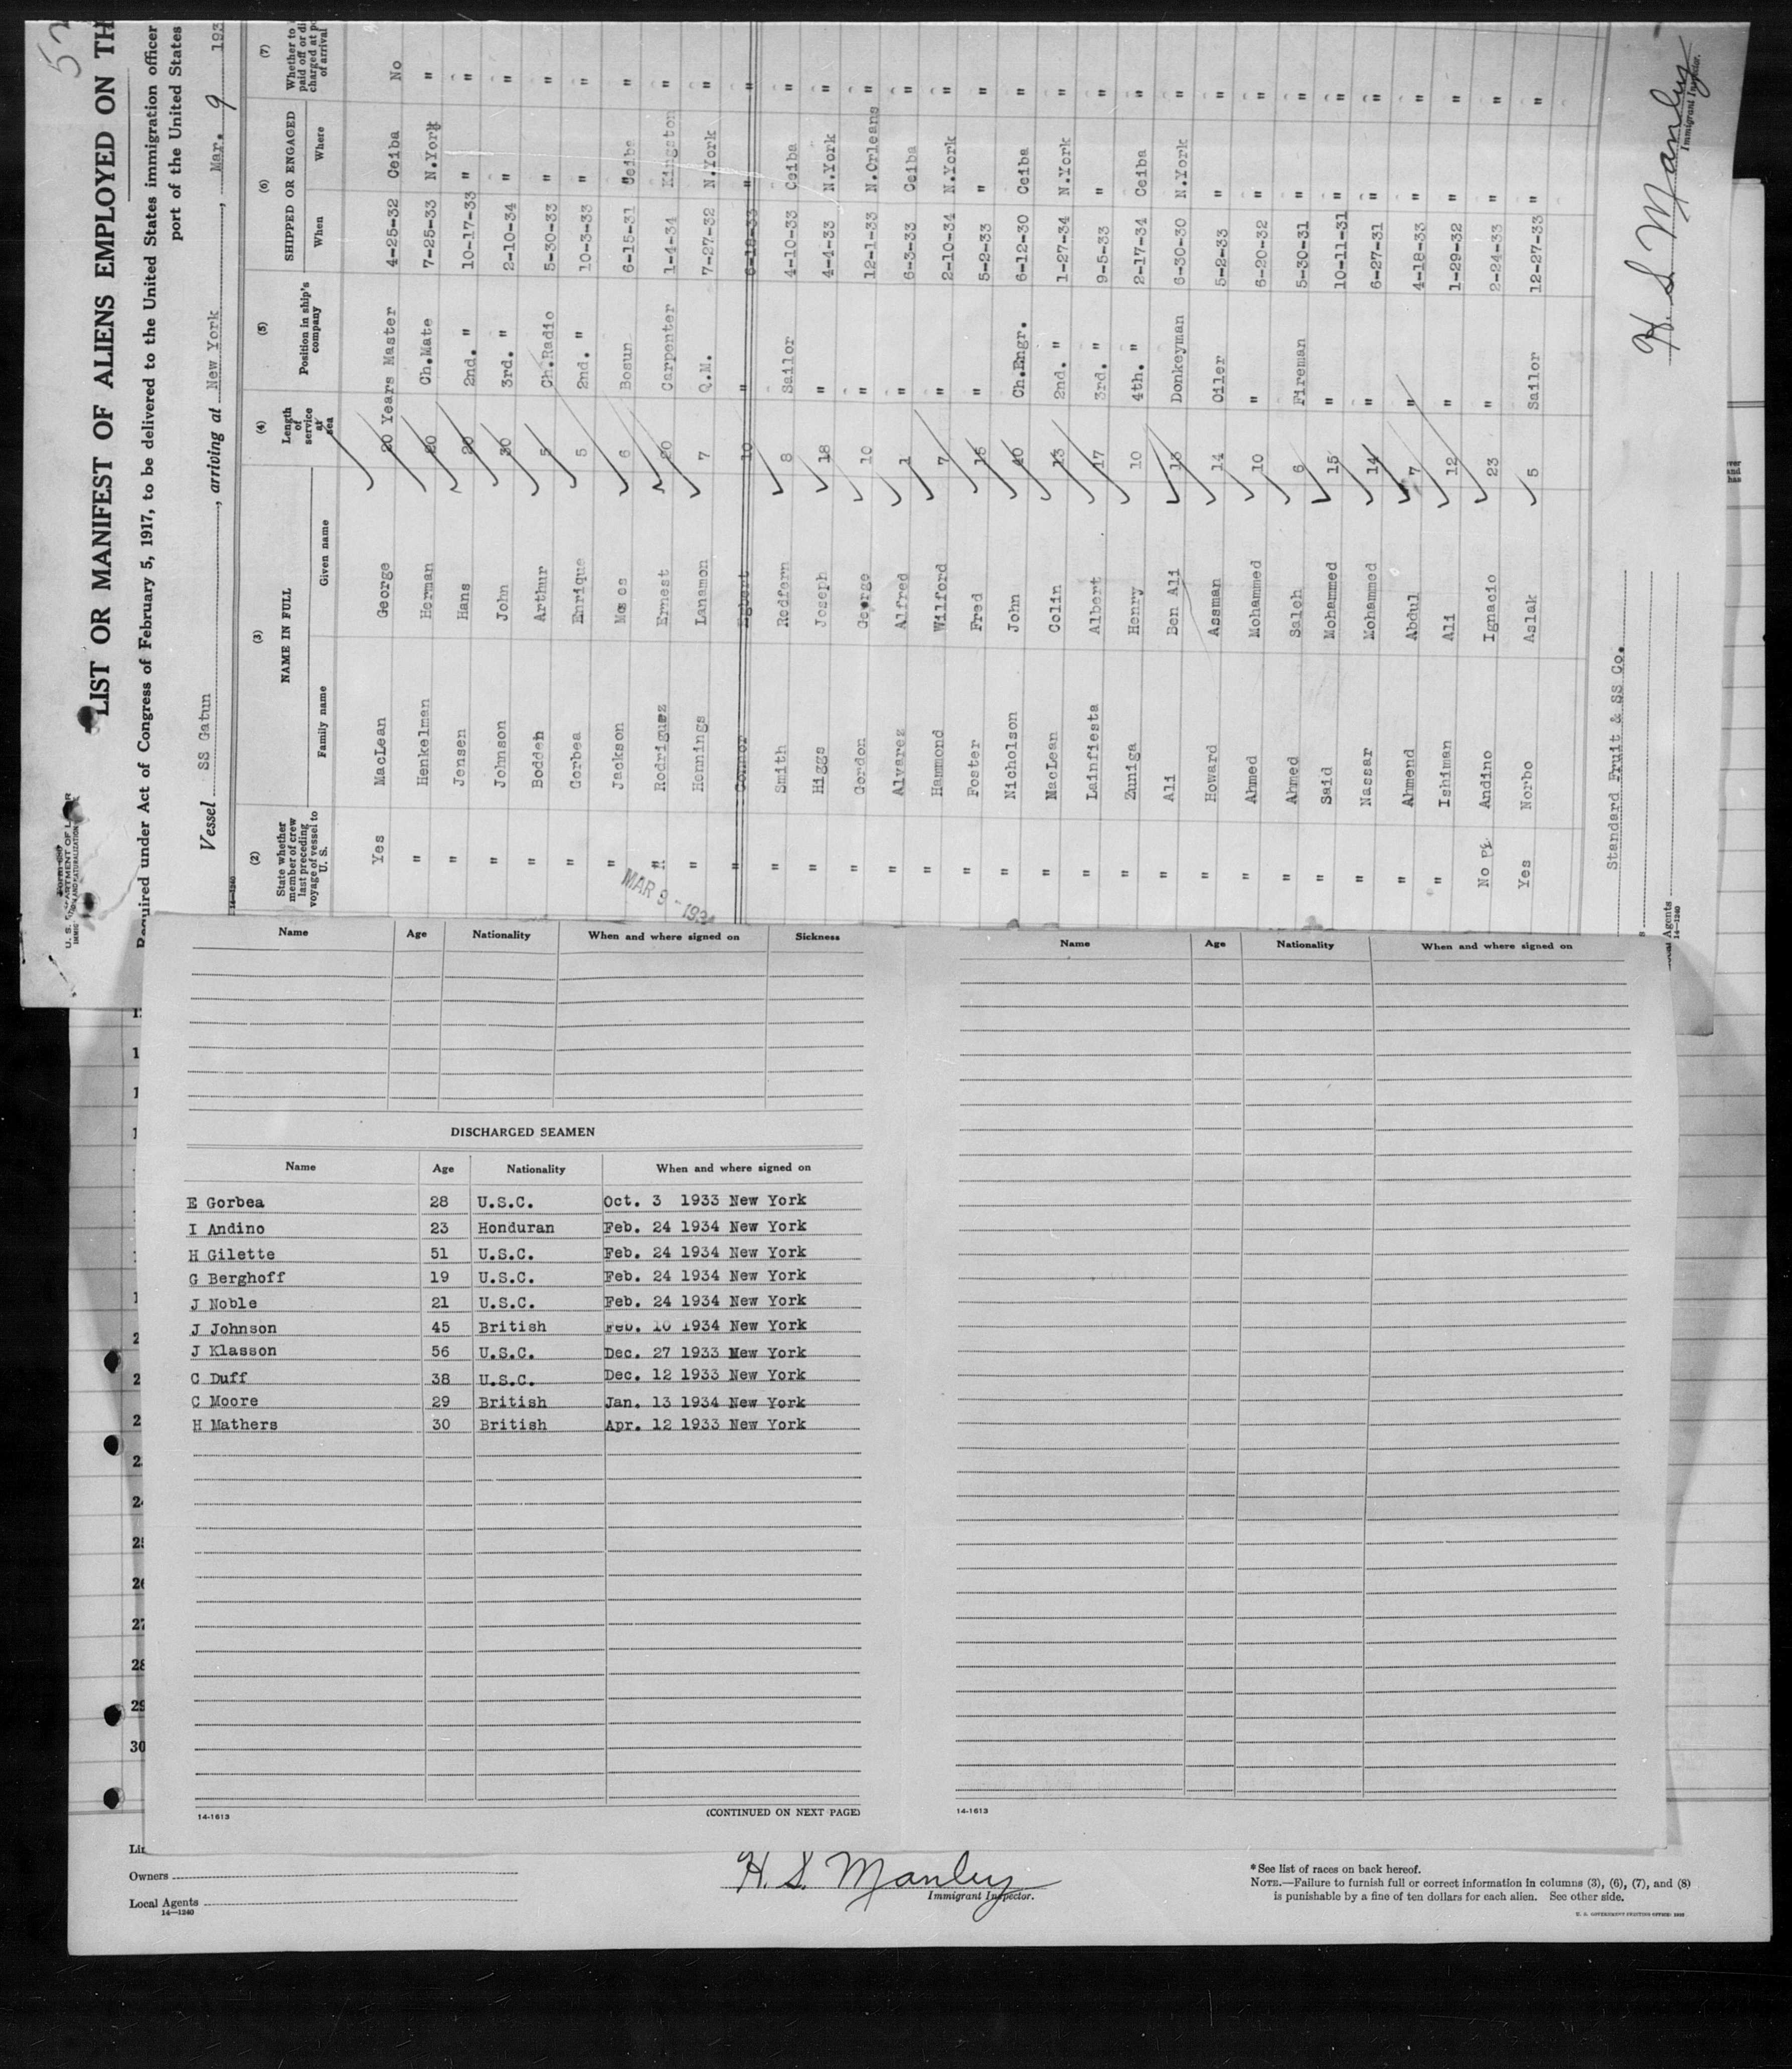 52
LIST OR MANIFEST OF ALIENS EMPLOYED ON TH
Required under Act of Congress of February 5, 1917, to be delivered to the United States immigration officer
port of the United States
Vessel SS Gatun, arriving at New York, Mar. 9 193
(2) (3) (4) (5) (6) (7)
State whether member of crew last preceding voyage of vessel to U. S.
NAME IN FULL
Family name Given name
Length of service at sea
Position in ship's company
SHIPPED OR ENGAGED
When Where
Whether to paid off or di charged at p of arrival
Yes MacLean George 20 Years Master 4-25-32 Ceiba No
" Henkelman Herman 20 Ch.Mate 7-25-33 N.York "
" Jensen Hans 20 2nd. " 10-17-33 " "
" Johnson John 30 3rd. " 2-10-34 " "
" Bodden Arthur 5 Ch.Radio 5-30-33 " "
" Gorbea Enrique 5 2nd. " 10-3-33 " "
" Jackson Moses 6 Bosun 6-15-31 Ceiba "
" Rodriguez Ernest 20 Carpenter 1-4-34 Kingston "
" Hennings Lanamon 7 Q.M. 7-27-32 N.York "
" Connor Egbert 10 " 6-18-33 " "
" Smith Redfern 8 Sailor 4-10-33 Ceiba "
" Higgs Joseph 18 " 4-4-33 N.York "
" Gordon George 10 " 12-1-33 N.Orleans "
" Alvarez Alfred 1 " 6-3-33 Ceiba "
" Hammond Wilford 7 " 2-10-34 N.York "
" Foster Fred 16 " 5-2-33 " "
" Nicholson John 40 Ch.Engr. 6-12-30 Ceiba "
" MacLean Colin 13 2nd. " 1-27-34 N.York "
" Lainfiesta Albert 17 3rd. " 9-5-33 " "
" Zuniga Henry 10 4th. " 2-17-34 Ceiba "
" Ali Ben Ali 13 Donkeyman 6-30-30 N.York "
" Howard Assman 14 Oiler 5-2-33 " "
" Ahmed Mohammed 10 " 6-20-32 " "
" Ahmed Saleh 6 Fireman 5-30-31 " "
" Said Mohammed 15 " 10-11-31 " "
" Nassar Mohammed 14 " 6-27-31 " "
" Ahmend Abdul 7 " 4-18-33 " "
" Ishiman Ali 12 " 1-29-32 " "
No Andino Ignacio 23 " 2-24-33 " "
Yes Norbo Aslak 5 Sailor 12-27-33 " "
MAR 9 - 1934
Standard Fruit & SS Co.
H. S. Manley
Immigrant Inspector.
14-1240
Name Age Nationality When and where signed on Sickness
Name Age Nationality When and where signed on
DISCHARGED SEAMEN
Name Age Nationality When and where signed on
E Gorbea 28 U.S.C. Oct. 3 1933 New York
I Andino 23 Honduran Feb. 24 1934 New York
H Gilette 51 U.S.C. Feb. 24 1934 New York
G Berghoff 19 U.S.C. Feb. 24 1934 New York
J Noble 21 U.S.C. Feb. 24 1934 New York
J Johnson 45 British Feb. 10 1934 New York
J Klasson 56 U.S.C. Dec. 27 1933 New York
C Duff 38 U.S.C. Dec. 12 1933 New York
C Moore 29 British Jan. 13 1934 New York
H Mathers 30 British Apr. 12 1933 New York
26
27
28
29
30
14-1613 (CONTINUED ON NEXT PAGE)
14-1613
Owners
Local Agents
14-1240
H. S. Manley
Immigrant Inspector.
*See list of races on back hereof.
NOTE.—Failure to furnish full or correct information in columns (3), (6), (7), and (8)
is punishable by a fine of ten dollars for each alien. See other side.